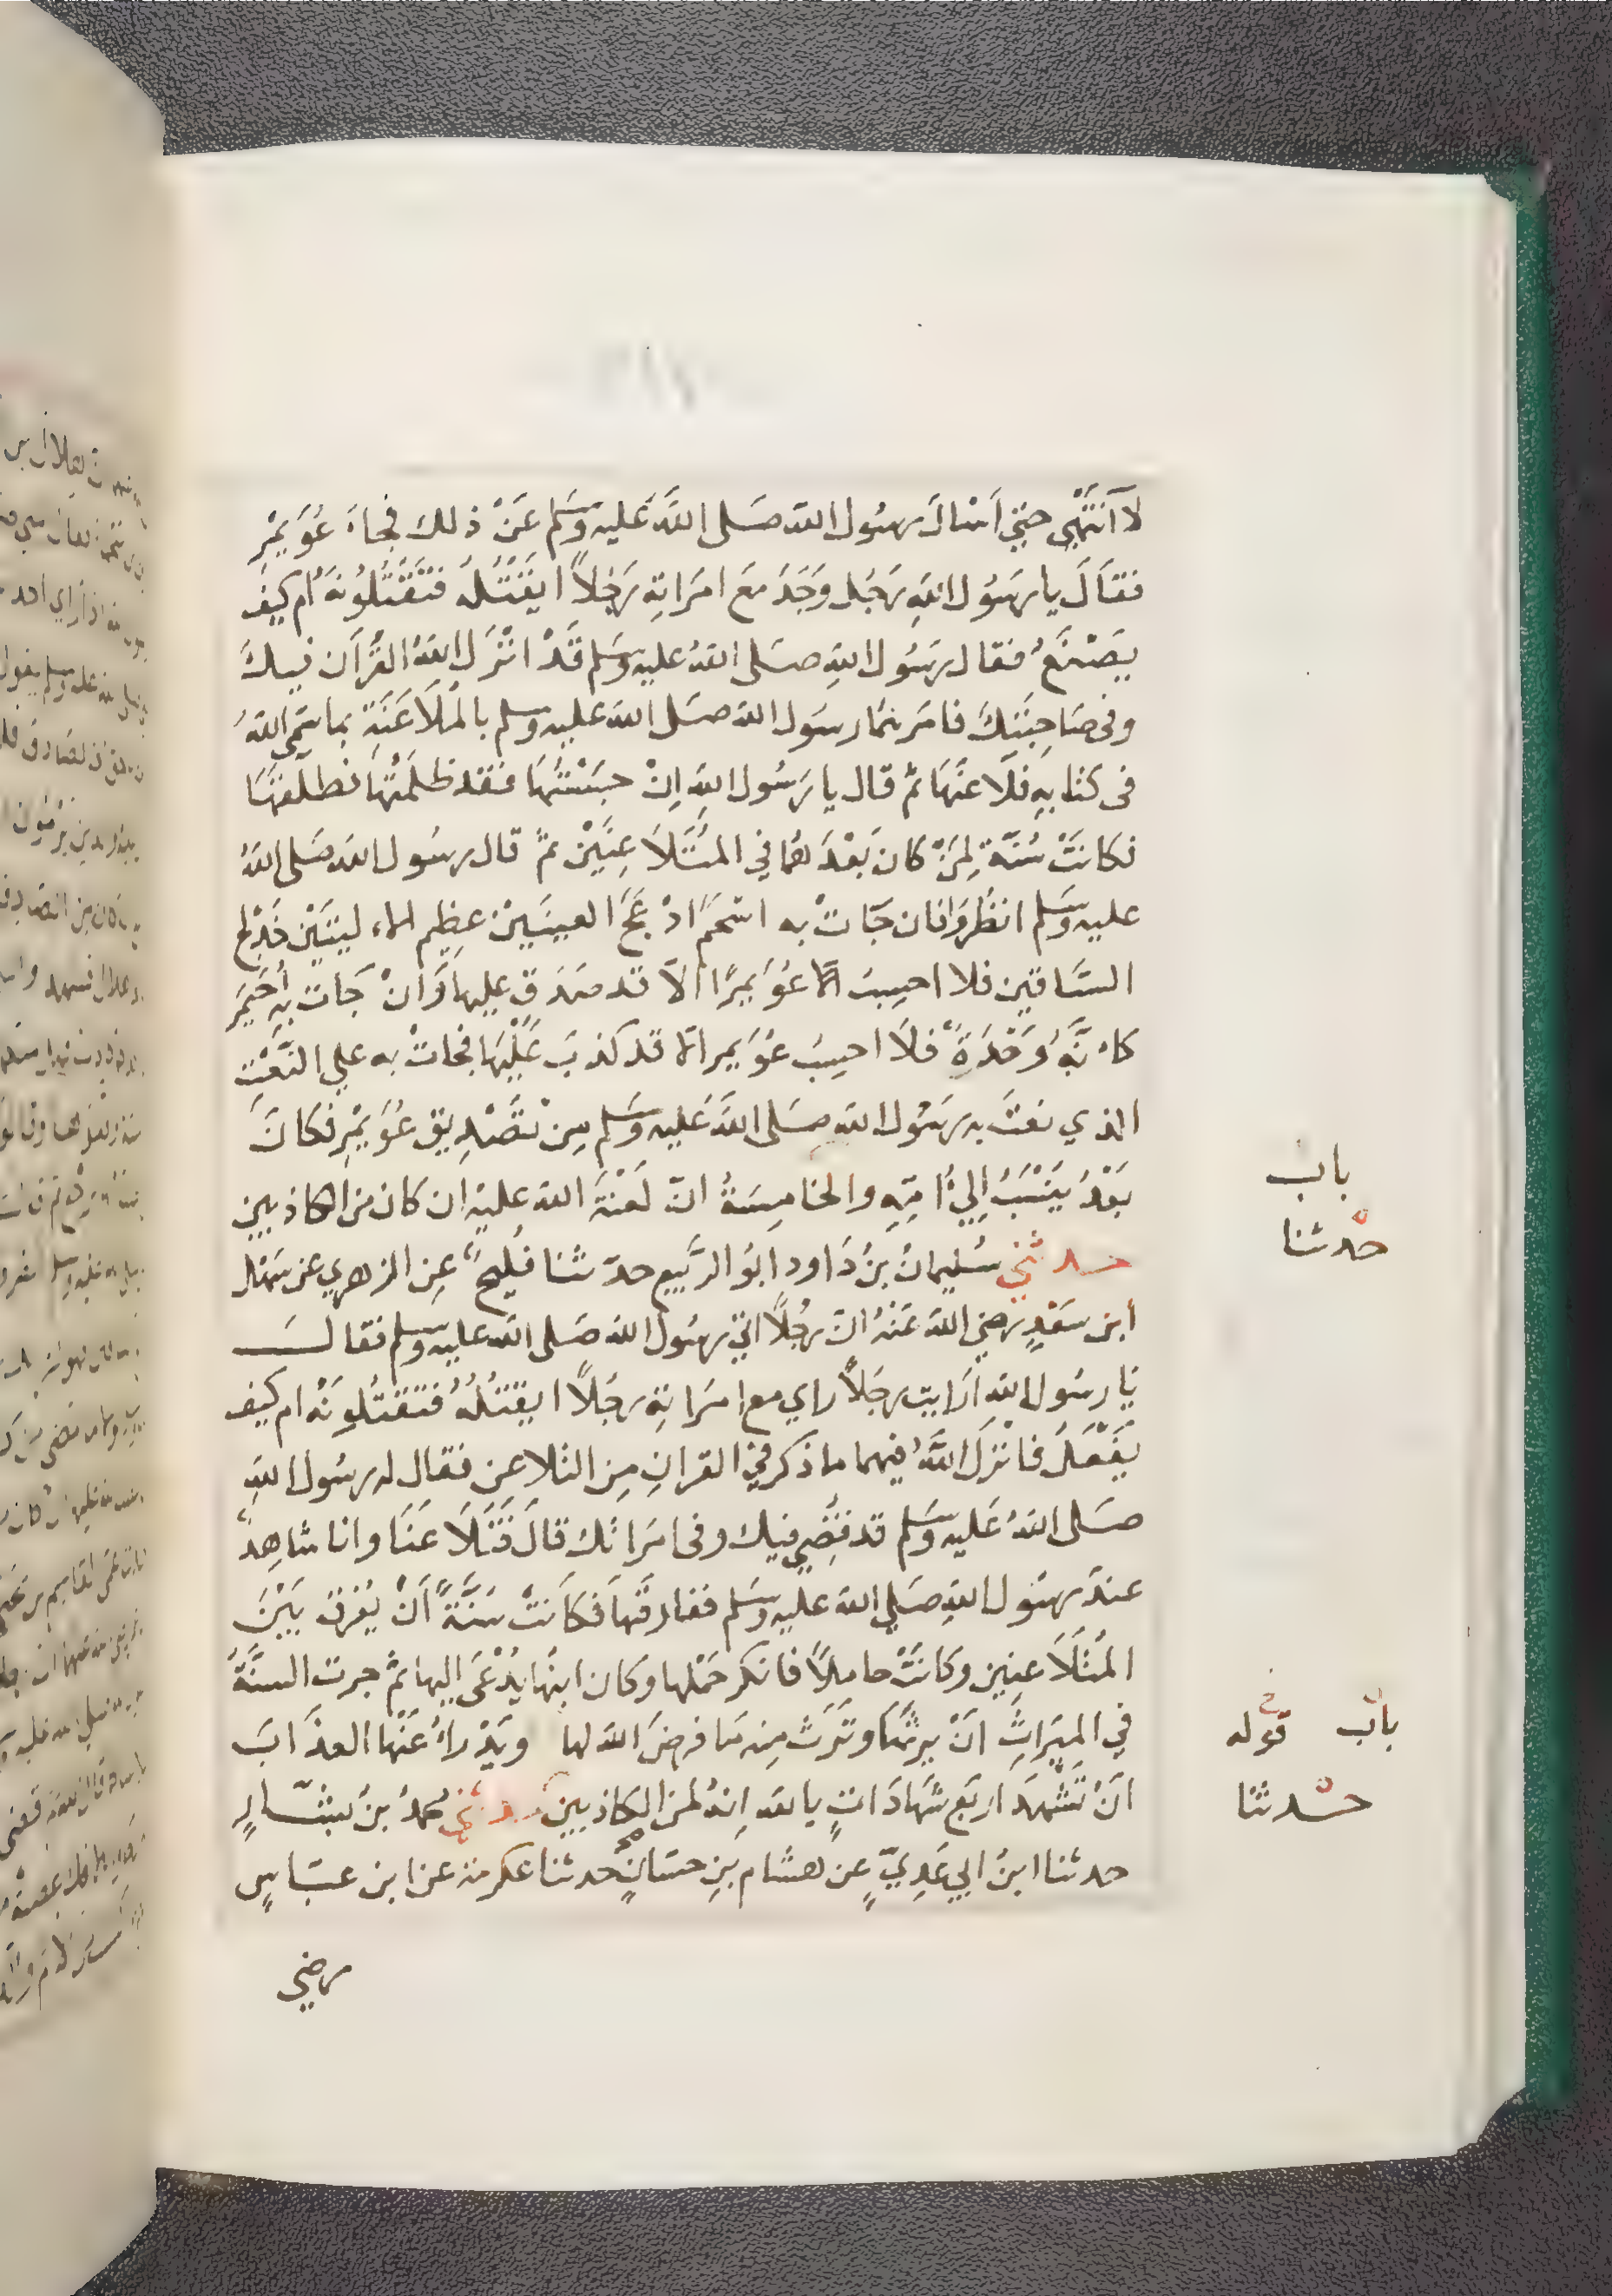 لا أنتهي حتي أسال رسول الله صَلى اللهُ عَليه وسَلم عَنْ ذلك فجاءَ عُوَيمْرِ
فقالَ يا رسُول اللهِ رَجُل وَجَدَ مَعَ امرَاتِهِ رَجُلاً ايَقْتُلُهُ فَتَقْتُلُونَهُ ام كيف
يصْنَعُ فقال رسُول اللهِ صَلى اللهُ عليهِ وسَلم قَدْ انْزلَ اللهُ القُرآن فيكَ
وفى صَاحِبَتِكَ فامَرهمَا رسوَل الله صَلى الله عليه وسلم بالمُلَاعَنَةِ بما سَمى اللهُ
فى كتابهِ فلَاعنَهَا ثم قال يا رَسُول اللهِ اِنْ حبَسْتُهَا فَقد ظلَمْتُهَا فطلّقهَا
فكانَتْ سُنّةً لِمَنْ كان بَعْدَهُما في المُتَلَاعِنَيْن ثمَّ قال رسُول الله صَلى اللهُ
عليه وسَلم انظُرُوا فان جَاتْ به اسْحَمَ ادْعَجَ العينَيِنْ عظِيم الاء ليتيَنْ خَدَلَّج
السَّاقين فلا احسِبُ انما عُوَيمرًا الاّ قد صَدَق عليهاَ وَانْ جَات بهِ أحَيمَر
كاء نّهُ وَحْرَةٌ فلَا احسِبُ عُوَيمر الا قد كذبَ عَلَيْهَا فجَاتْ به علي النَّعْتِ
الذي نعَتَ به رسُول الله صَلى اللهُ عَليه وسَلم مِن تَصْدِيق عُوَيمْرِ فكَانَ
بَعْدُ يُنْسَبُ إلىُ امّهِ والخامِسَةُ انّ لَعْنَةَ الله عليهِ ان كان من الكاذبين
حدثني سُليمانُ بنُ دَاود ابوُ الرَّبيع حدّثنا فُليحٌ عن الزهري عن سَهْل
أبن سَعْدٍ رضي الله عَنْهُ انّ رجُلاً اتي رسُول الله صَلى الله عليه وسلم فقالَ
يَا رسُول الله اَرَايت رجُلاً راي مع امرَاتهِ رجُلاً ايقتُلُهُ فتَقتُلونَهُ ام كيف
يفْعَلُ فانْزلَ اللهُ فيهما ما ذكر في القرانِ مِن التلاعن فقال له رسُول اللهِ
صَلى اللهُ عَليه وسَلم قد قُضِي فيك وفى امرَاتك قالَ فَتَلَاعَنَا وانا شاهِدٌ
عندَ رسُول اللهِ صَلي الله عليه وسَلم ففارقهَا فكانتْ سُنَّةً أنْ يُفرق بَيْنَ
المُتَلَاعِنين وكانتْ حاملاً فانكر حَمْلها وكان ابنُهَا يُدْعَى اليها ثمّ جرت السنَّةُ
في المِيَراثِ انْ يرثَهَا وتَرثَ مِنه مَا فرضَ الله لها ويَدْراءُ عَنْهَا العذَابَ
انْ تَشْهدَ اربَع شهَادَاتٍ بالله اِنهُ لمن الكاذبين حدثني محمدُ بنُ بشَّارٍ
حدثنا ابنُ ابي عَدِيٍّ عن هشام بنِ حسَانٍ حدثنا عكرمة عن ابن عبّاسٍ
رضي
باب
حدثنا
باب قوله
حدثنا